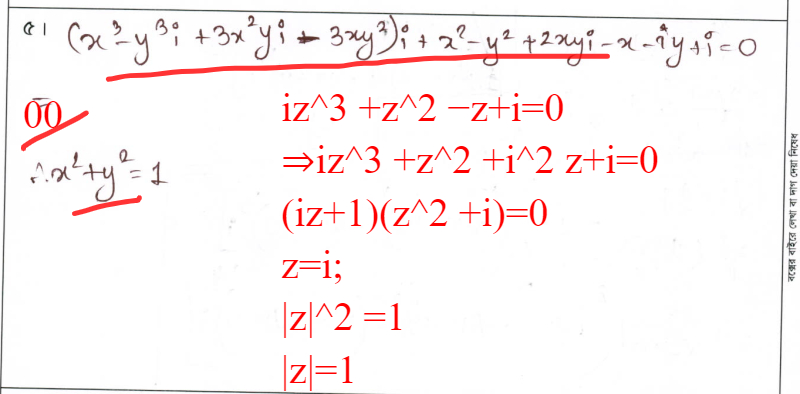 ৫। (x³-y³i +3x²yi - 3xy²)i + x²-y² +2xyi -x -iy+i=0
00
∴x²+y²=1
iz^3 +z^2 −z+i=0
⇒iz^3 +z^2 +i^2 z+i=0
(iz+1)(z^2 +i)=0
z=i;
|z|^2 =1
|z|=1
বক্সের বাইরে লেখা বা দাগ দেয়া নিষেধ